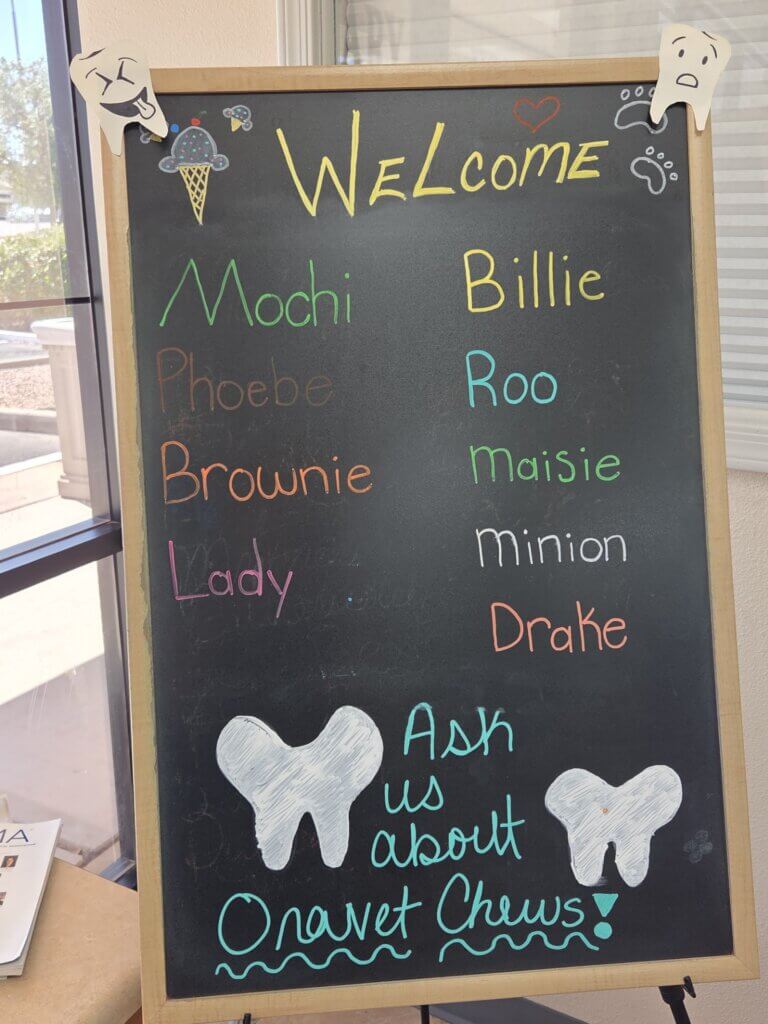 WeLcome
Mochi
Phoebe
Brownie
Lady
Billie
Roo
maisie
minion
Drake
Ask
us
about
Oravet Chews!
MA